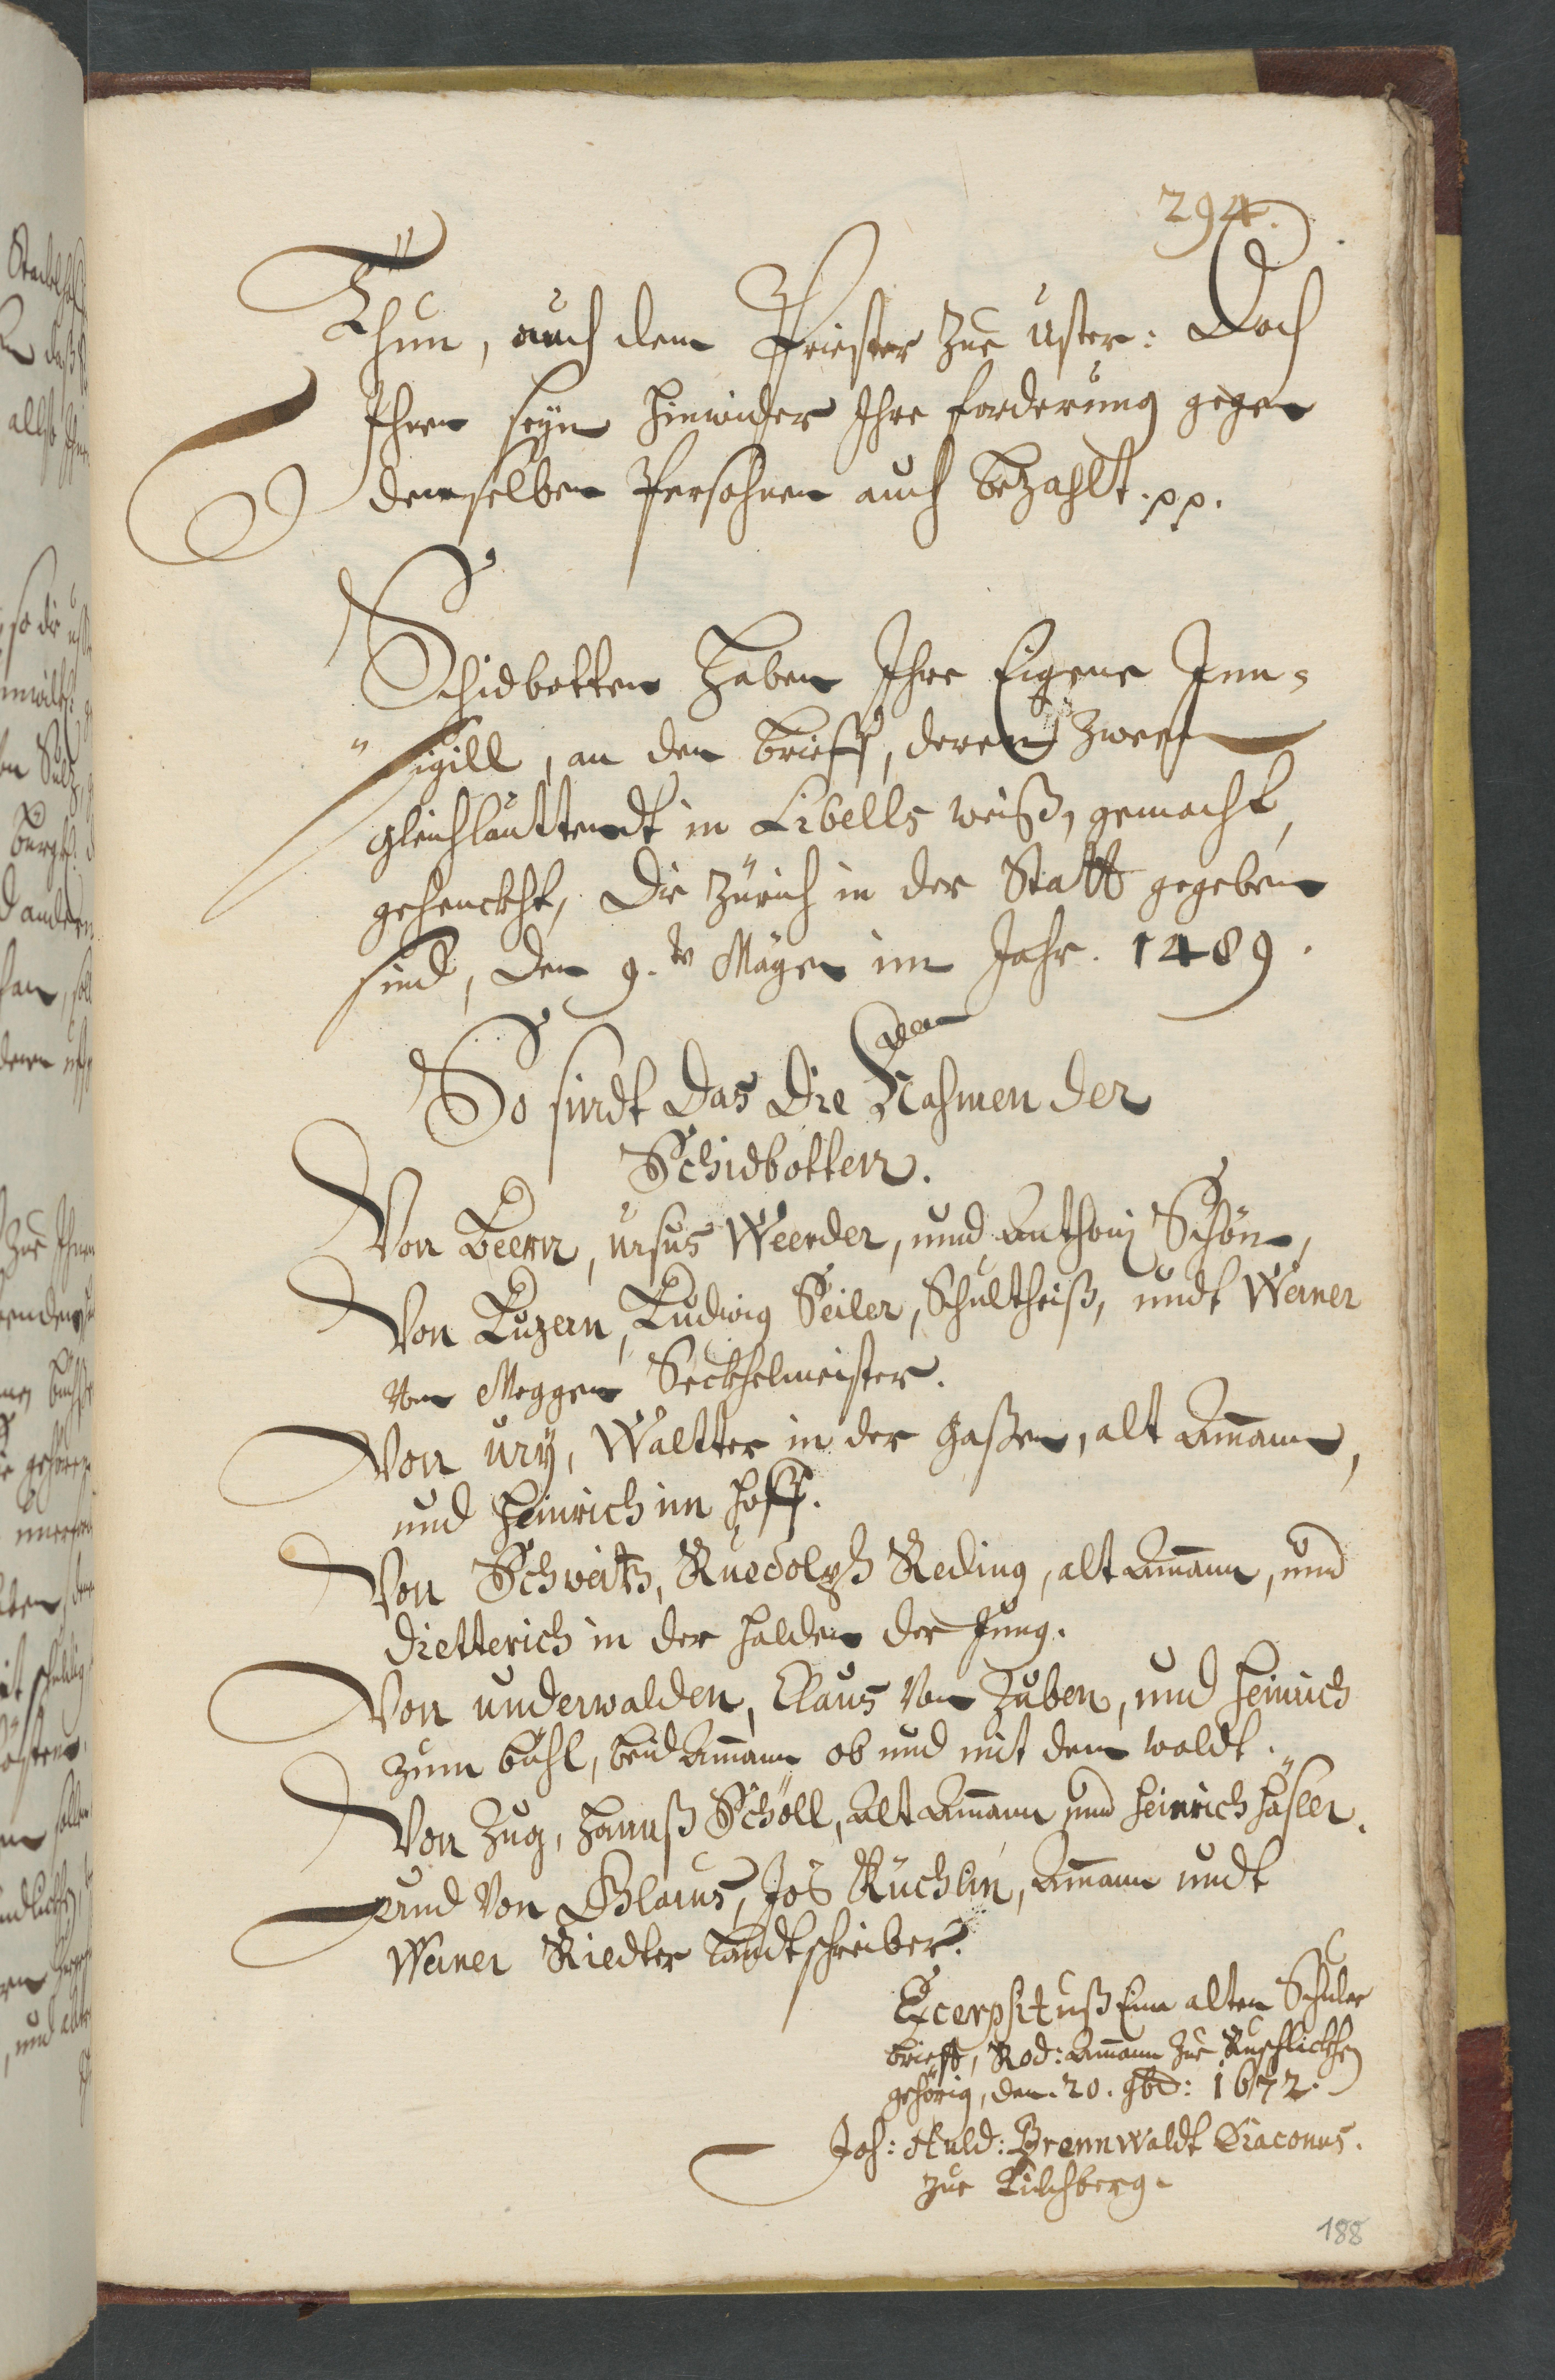 294.
Thun, auch dem Priester zue Uster: Doch
Ihren seyn hinwider Ihre forderung gegen
denselben Persohnen auch bezahlt. pp.
Schidbotten Haben Ihre Eigene Inn-
"sigill, an den brieff, deren zween
gleichlauttendt in Libells weiß, gemacht,
gehenckht, Die Zürich in der Statt gegeben
sind, den 9.ten Mayen im Jahr. 1489.
So sindt das die Nahmen der
Schidbotten.
Von Beern, Ursus Weerder, unnd Anthoni Schön,
Von Luzern, Ludwig Seiler, Schultheiß, undt Werner
von Meggen Seckhelmeister.
Von Ury, Waltter in der gaßen, alt Amann,
und Heinrich im Hoff.
Von Schweitz, Ruedolph Reding, alt Amann, und
Dietterich in der Halden der Jung.
Von Underwalden, Claus von Zuben, und Heinrich
zum bühl, beid Amann ob und nit dem waldt.
Von Zug, Hannß Schöll, Alt Amann und Heinrich Häsler.
und Von Glarus, Jos Küchlin, Amann undt
Werner Riedler Landtschreiber.
Excerpsit uß Einem alten Schuler
brieff, Rod: Amann zue Ruschlickhen
gehörig, den. 20. 9br: 1672.
Joh: Huld: Brennwaldt Diaconus.
zue Kilchberg.
188